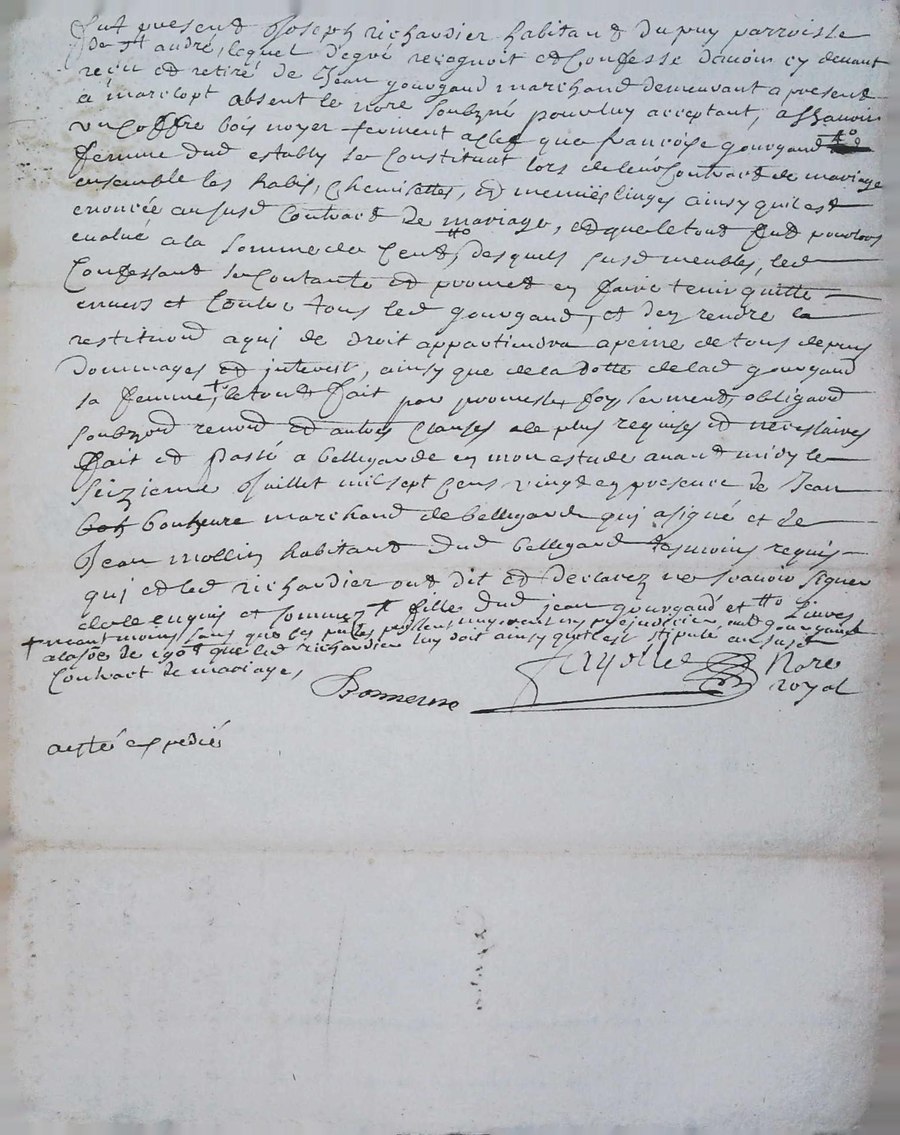 fut present Joseph richardier habitant du puy parroisse
de st andré, lequel degré recognoit et Confesse davoir cy devant
recu et retiré de Jean gourgaud marchand demeurant a present
a marclopt absent le nore soubzné pour luy acceptant, assavoir
un Coffre bois noyer ferment a clef que francoise gourgaud tto
femme dud estably se Constituat lors de leur Contract de mariage
ensemble les habis, Chemisettes, et menus linges ainsy quil est
enoncée au susd Contract de mariage, et que le tout fut pour lors
evalué a la somme de Cent tto, desquels susd meubles, led
Confessant se Contante et promet en faire tenir quitte
envers et Contre tous led gourgaud, et den rendre la
restituond a qui de droit appartiendra a peine de tous depens
dommages et interest, ainsy que de la dotte de lad gourgaud
sa femme, + le tout fait par promesse foy serment, obligaond
soubzond renond et autres Clauses a le plus requises et necessaires
fait et passé a bellegarde en mon estude avand midy le
seizieme Juillet mil sept Cens vingt en presence de Jean
bonheure marchand de bellegarde qui a signé et de
Jean mollin habitant dud bellegarde tesmoins requis
qui et led richardier ont dit et declarez ne scavoir signer
de ce enquis et sommez tt fille dud jean gourgaud et tto Livres
+ neantmoins sans que les puissent aud gourgaud
a la so͠e de que led richardier luy doit ainsy quil est stipulé au susd
Contract de mariage,
Bonnerre
nore
royal
a esté expedié